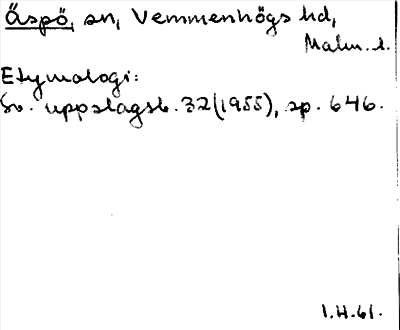 Äspö, sn, Vemmenhögs hd,
Malm. l.
Etymologi:
Sv. uppslagsb. 32(1955), sp. 646.
1.H.61.